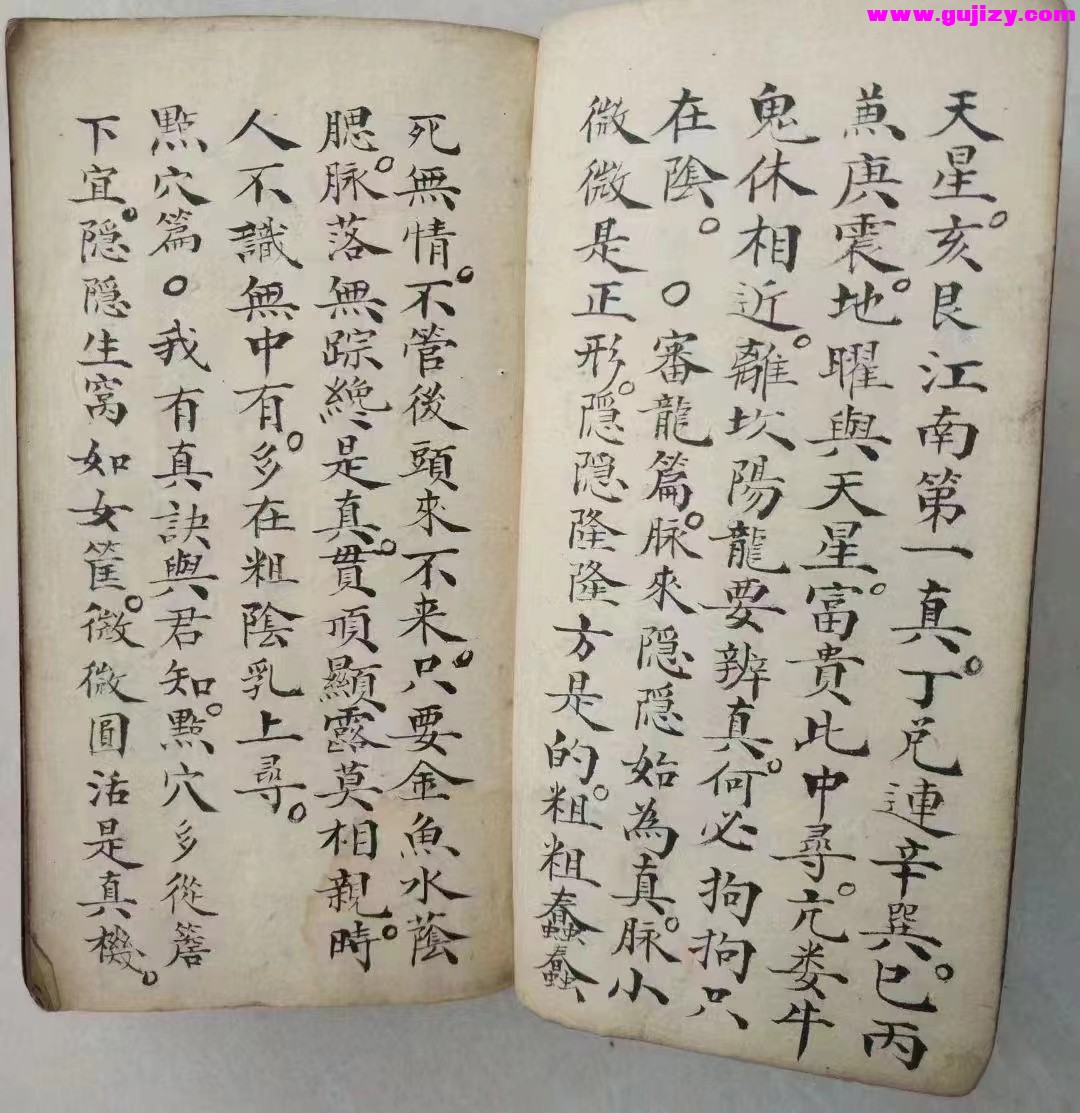 www.gujizy.com
天星。亥艮江南第一真。丁兑連辛巽。巳丙
兼庚震。地曜與天星。富貴此中尋。亢娄牛
鬼休相近。離坎陽龍要辨真。何必拘拘只
在陰。○審龍篇。脉來隠隠始為真。脉小
微微是正形。隠隠隆隆方是的。粗粗蠢蠢
死無情。不管後頭來不来。只要金魚水蔭
腮。脉落無踪纔是真。貫頂顯露莫相親。時
人不識無中有。多在粗陰乳上尋。
點穴篇。○我有真訣與君知。點穴多從簷
下宜。隠隠生窩如女筐。微微圓活是真機。